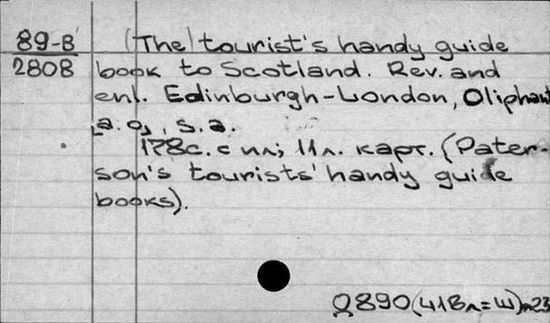 89-8 (The) tourist's handy guide
2808 book to Scotland. Rev. and
enl. Edinburgh-London, Oliphant
[a.o], s.a.
178с. с ил; 11л. карт. (Pater-
son's tourists' handy guide
books).
(41Вл=Ш)